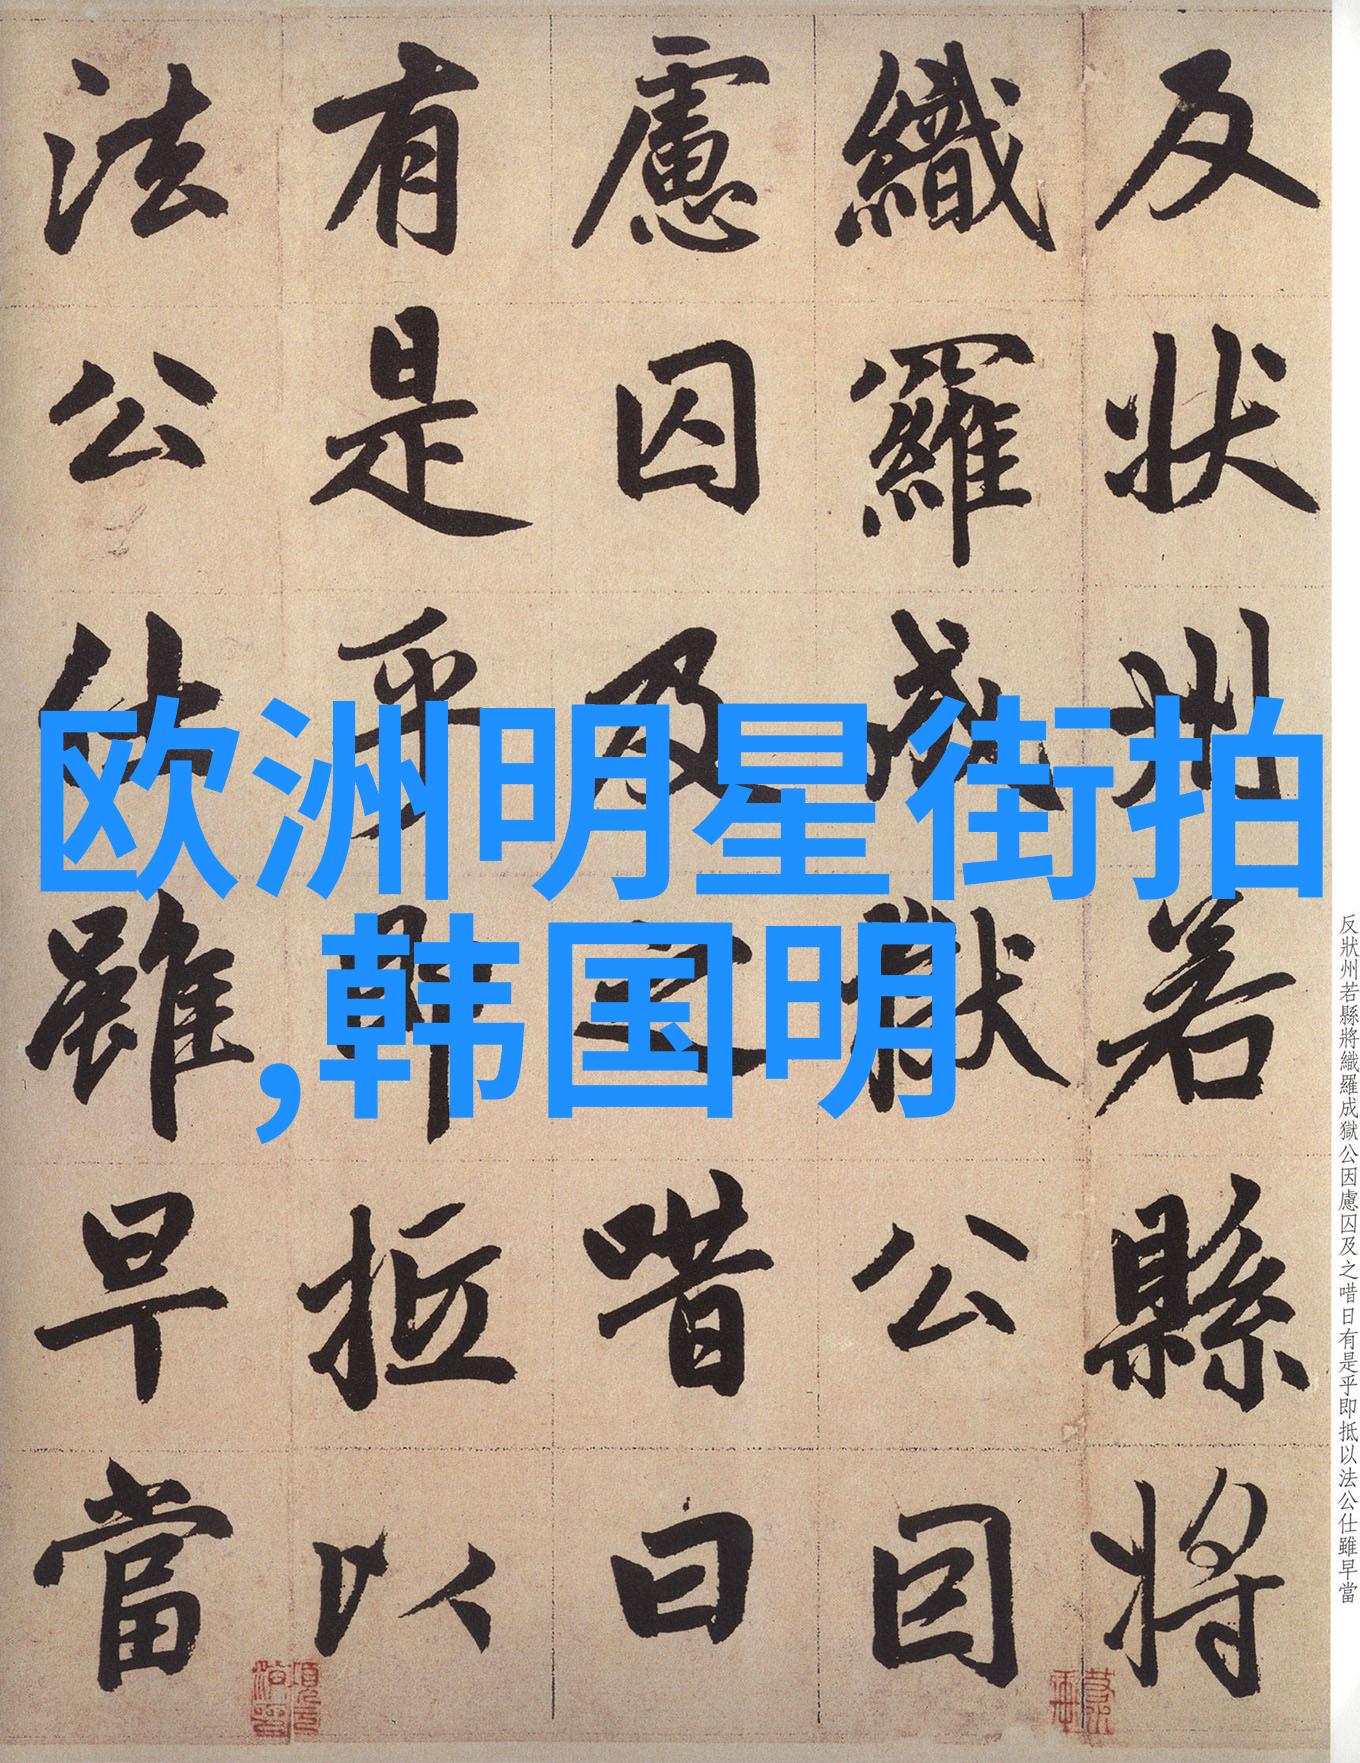 反状州若縣将
織羅成獄公因
慮囚及之唶日
有是乎即抵以
法公仕雖早當
欧洲明星街拍
,韩国明
反狀州若縣將織羅成獄公因慮囚及之唶日有是乎即抵以法公仕雖早當